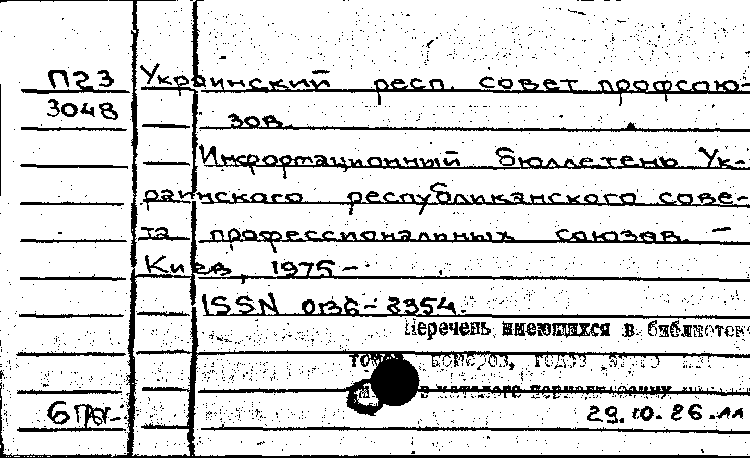 П23 Украинский респ. совет профсою-
3048 зов.
Информационный бюллетень Ук-
раинского республиканского сове-
та профессиональных союзов. –
Киев, 1975 –
ISSN 0136-2354.
Перечень имеющихся в библиотеке
томов, номеров, годов
в каталоге периодических
29.10.86.